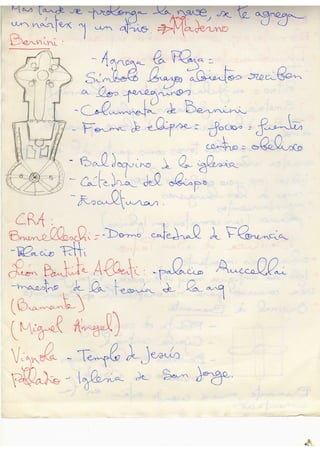 Mas tarde se prolonga la nave, se le agrega
un nartex y un atrio ⇒ Maderno
Bernini:
- Agrega la Plaza =
Símbolo brazos abiertos reciben
a los peregrinos.
- Columnata de Bernini
- Forma de elipse = focos = fuentes
centro = obelisco
- Baldoquino de la iglesia
- Cátedra del obispo
- Esculturas.
CRA:
Brunelleschi = - Domo catedral de Florencia
- Placio Pitti
León Bautista Alberti: - palacio Ruccellai
- maestro de la teoria de la arq
(Bramante)
(Miguel Angel)
Vignola - Templo de Jesús
Palladio - Iglesia de San Jorge.